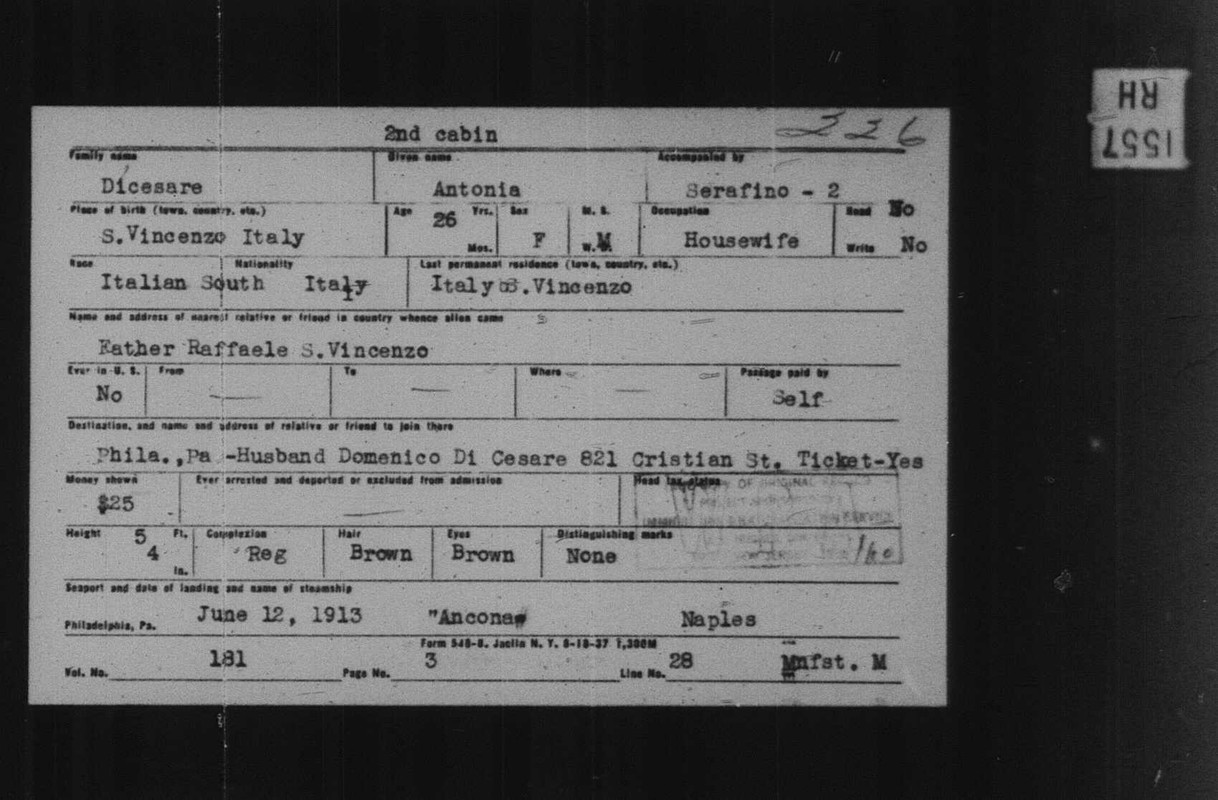 1557
RH
2nd cabin 226
Family name Given name Accompanied by
Dicesare Antonia Serafino - 2
Place of birth (town, country, etc.) Age 26 Yrs. Mos. Sex F M. S. W. M Occupation Read No
S.Vincenzo Italy Housewife Write No
Race Nationality Last permanent residence (town, country, etc.)
Italian South Italy Italy S.Vincenzo
Name and address of nearest relative or friend in country whence alien came
Father Raffaele S.Vincenzo
Ever in U. S. From To Where Passage paid by
No — — — Self
Destination, and name and address of relative or friend to join there
Phila.,Pa -Husband Domenico Di Cesare 821 Cristian St. Ticket-Yes
Money shown Ever arrested and deported or excluded from admission Head tax status
$25 — OF ORIGINAL
Height 5 Ft. Complexion Hair Eyes Distinguishing marks
4 In. Reg Brown Brown None
Seaport and date of landing and name of steamship
Philadelphia, Pa. June 12, 1913 "Ancona" Naples
Form 548-B. Jaclin N. Y. 8-18-37 1,300M
Vol. No. 181 Page No. 3 Line No. 28 Mnfst. M